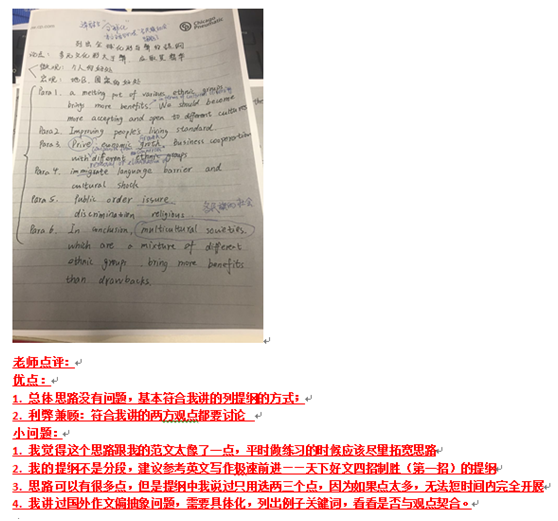 Chicago Booth
全球化
论述:
微观: 个人的好处
宏观: 地区, 国家的好处
Para 1. a melting pot of various ethnic groups
brings more benefits. We should become
more accepting and open to different cultures
Para 2. Improving people's living standard.
Para 3. business cooperation
with different ethnic groups
Para 4. immigrate language barrier and
cultural shock
Para 5. Public order issure
discrimination religious
Para 6. In conclusion, multicultural societies,
which are a mixture of different
ethnic group bring more benefits
than drawbacks.
老师点评:
优点:
1. 总体思路没有问题, 基本符合我讲的列提纲的方式;
2. 利弊兼顾: 符合我讲的两方观点都要讨论
小问题:
1. 我觉得这个思路跟我的范文太像了一点, 平时做练习的时候应该尽里拓宽思路
2. 我的提纲不是分段, 建议参考英文写作极速前进——天下好文四招制胜(第一招)的提纲
3. 思路可以有很多点, 但是提纲中我说过只用选两三个点, 因为如果点太多, 无法短时间内完全开展
4. 我讲过国外作文偏抽象问题, 需要具体化, 列出例子关键词, 看看是否与观点契合。